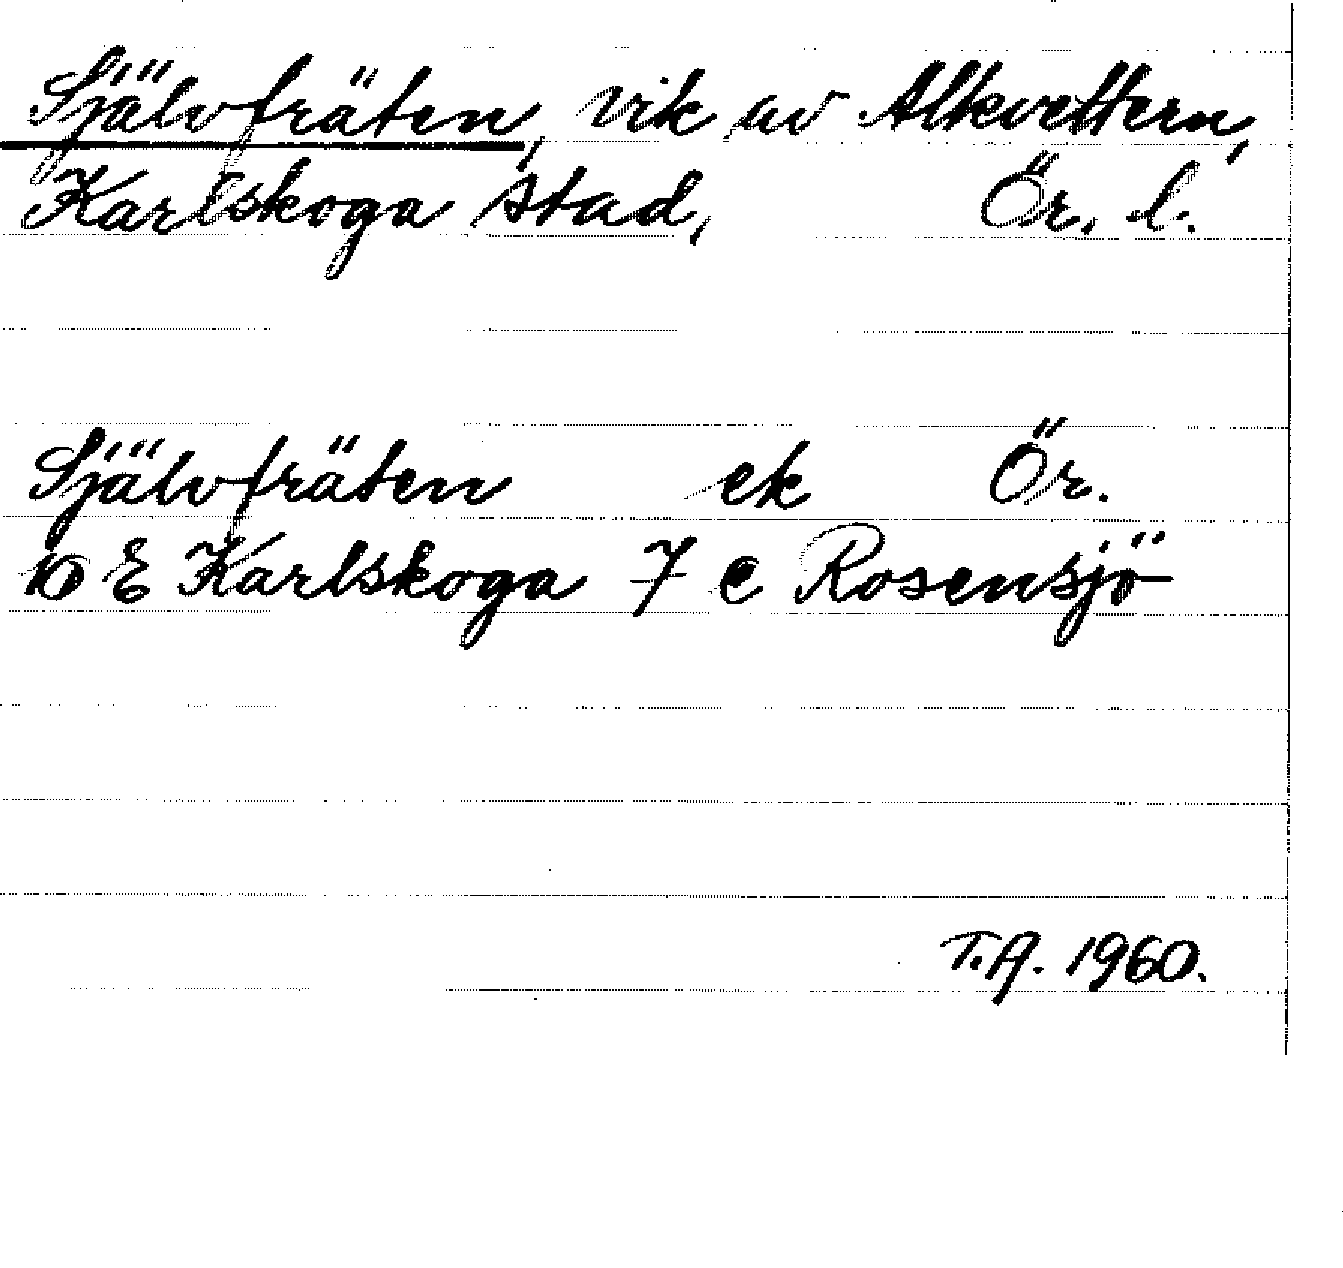 Självfräten, vik av Alkvettern,
Karlskoga stad, Ör. l.
Självfräten ek Ör.
10 E Karlskoga 7 e Rosensjö
T.A. 1960.